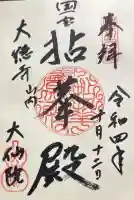 奉拝
令和四年
十月十二日
国宝
拈華殿
大徳寺山内
大仙院